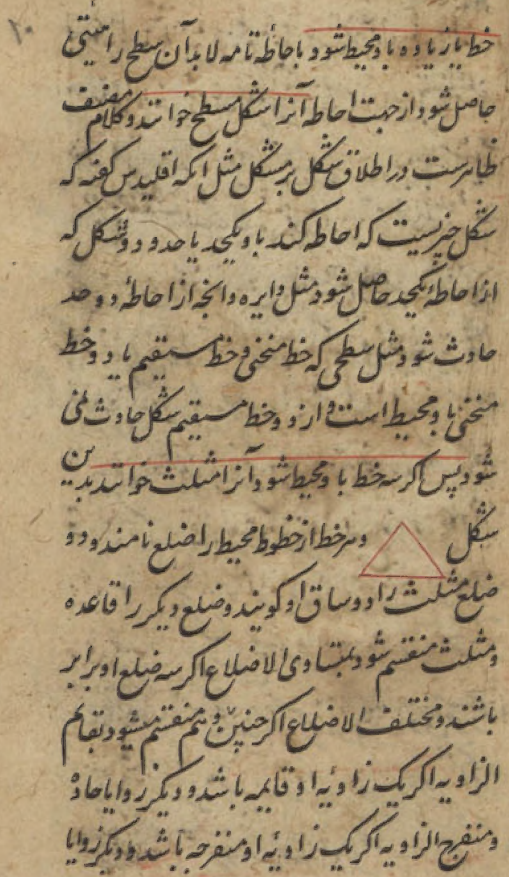 خط یا زیاده باو محیط شود باحاطه تامه لابد آن سطح را هیئتی
حاصل شود از جهت احاطه آنرا شکل مسطح خوانند و کلام مصنف
ظاهرست در اطلاق شکل بر مشکل مثل انکه اقلیدس کفته که
شکل چیزیست که احاطه کند باو یکحد یا حدود و شکل که
از احاطهٔ یکحد حاصل شود مثل دایره و انچه از احاطهٔ دو حد
حادث شود مثل سطحی که خط منحنی و خط مستقیم یا دو خط
منحنی باو محیط است و از دو خط مستقیم شکل حادث نمی
شود پس اکر سه خط باو محیط شود آنرا مثلث خوانند بدین
شکل و هر خط از خطوط محیط را ضلع نامند و دو
ضلع مثلث را دو ساق او کویند و ضلع دیکر را قاعده
و مثلث منقسم شود بمتساوی الاضلاع اکر سه ضلع او برابر
باشند و مختلف الاضلاع اکر چنین و هم منقسم میشود بقایم
الزاویه اکر یک زاویهٔ او قایمه باشد و دیکر زوایا حادّه
و منفرج الزاویه اکر یک زاویهٔ او منفرجه باشد و دیکر زوایا